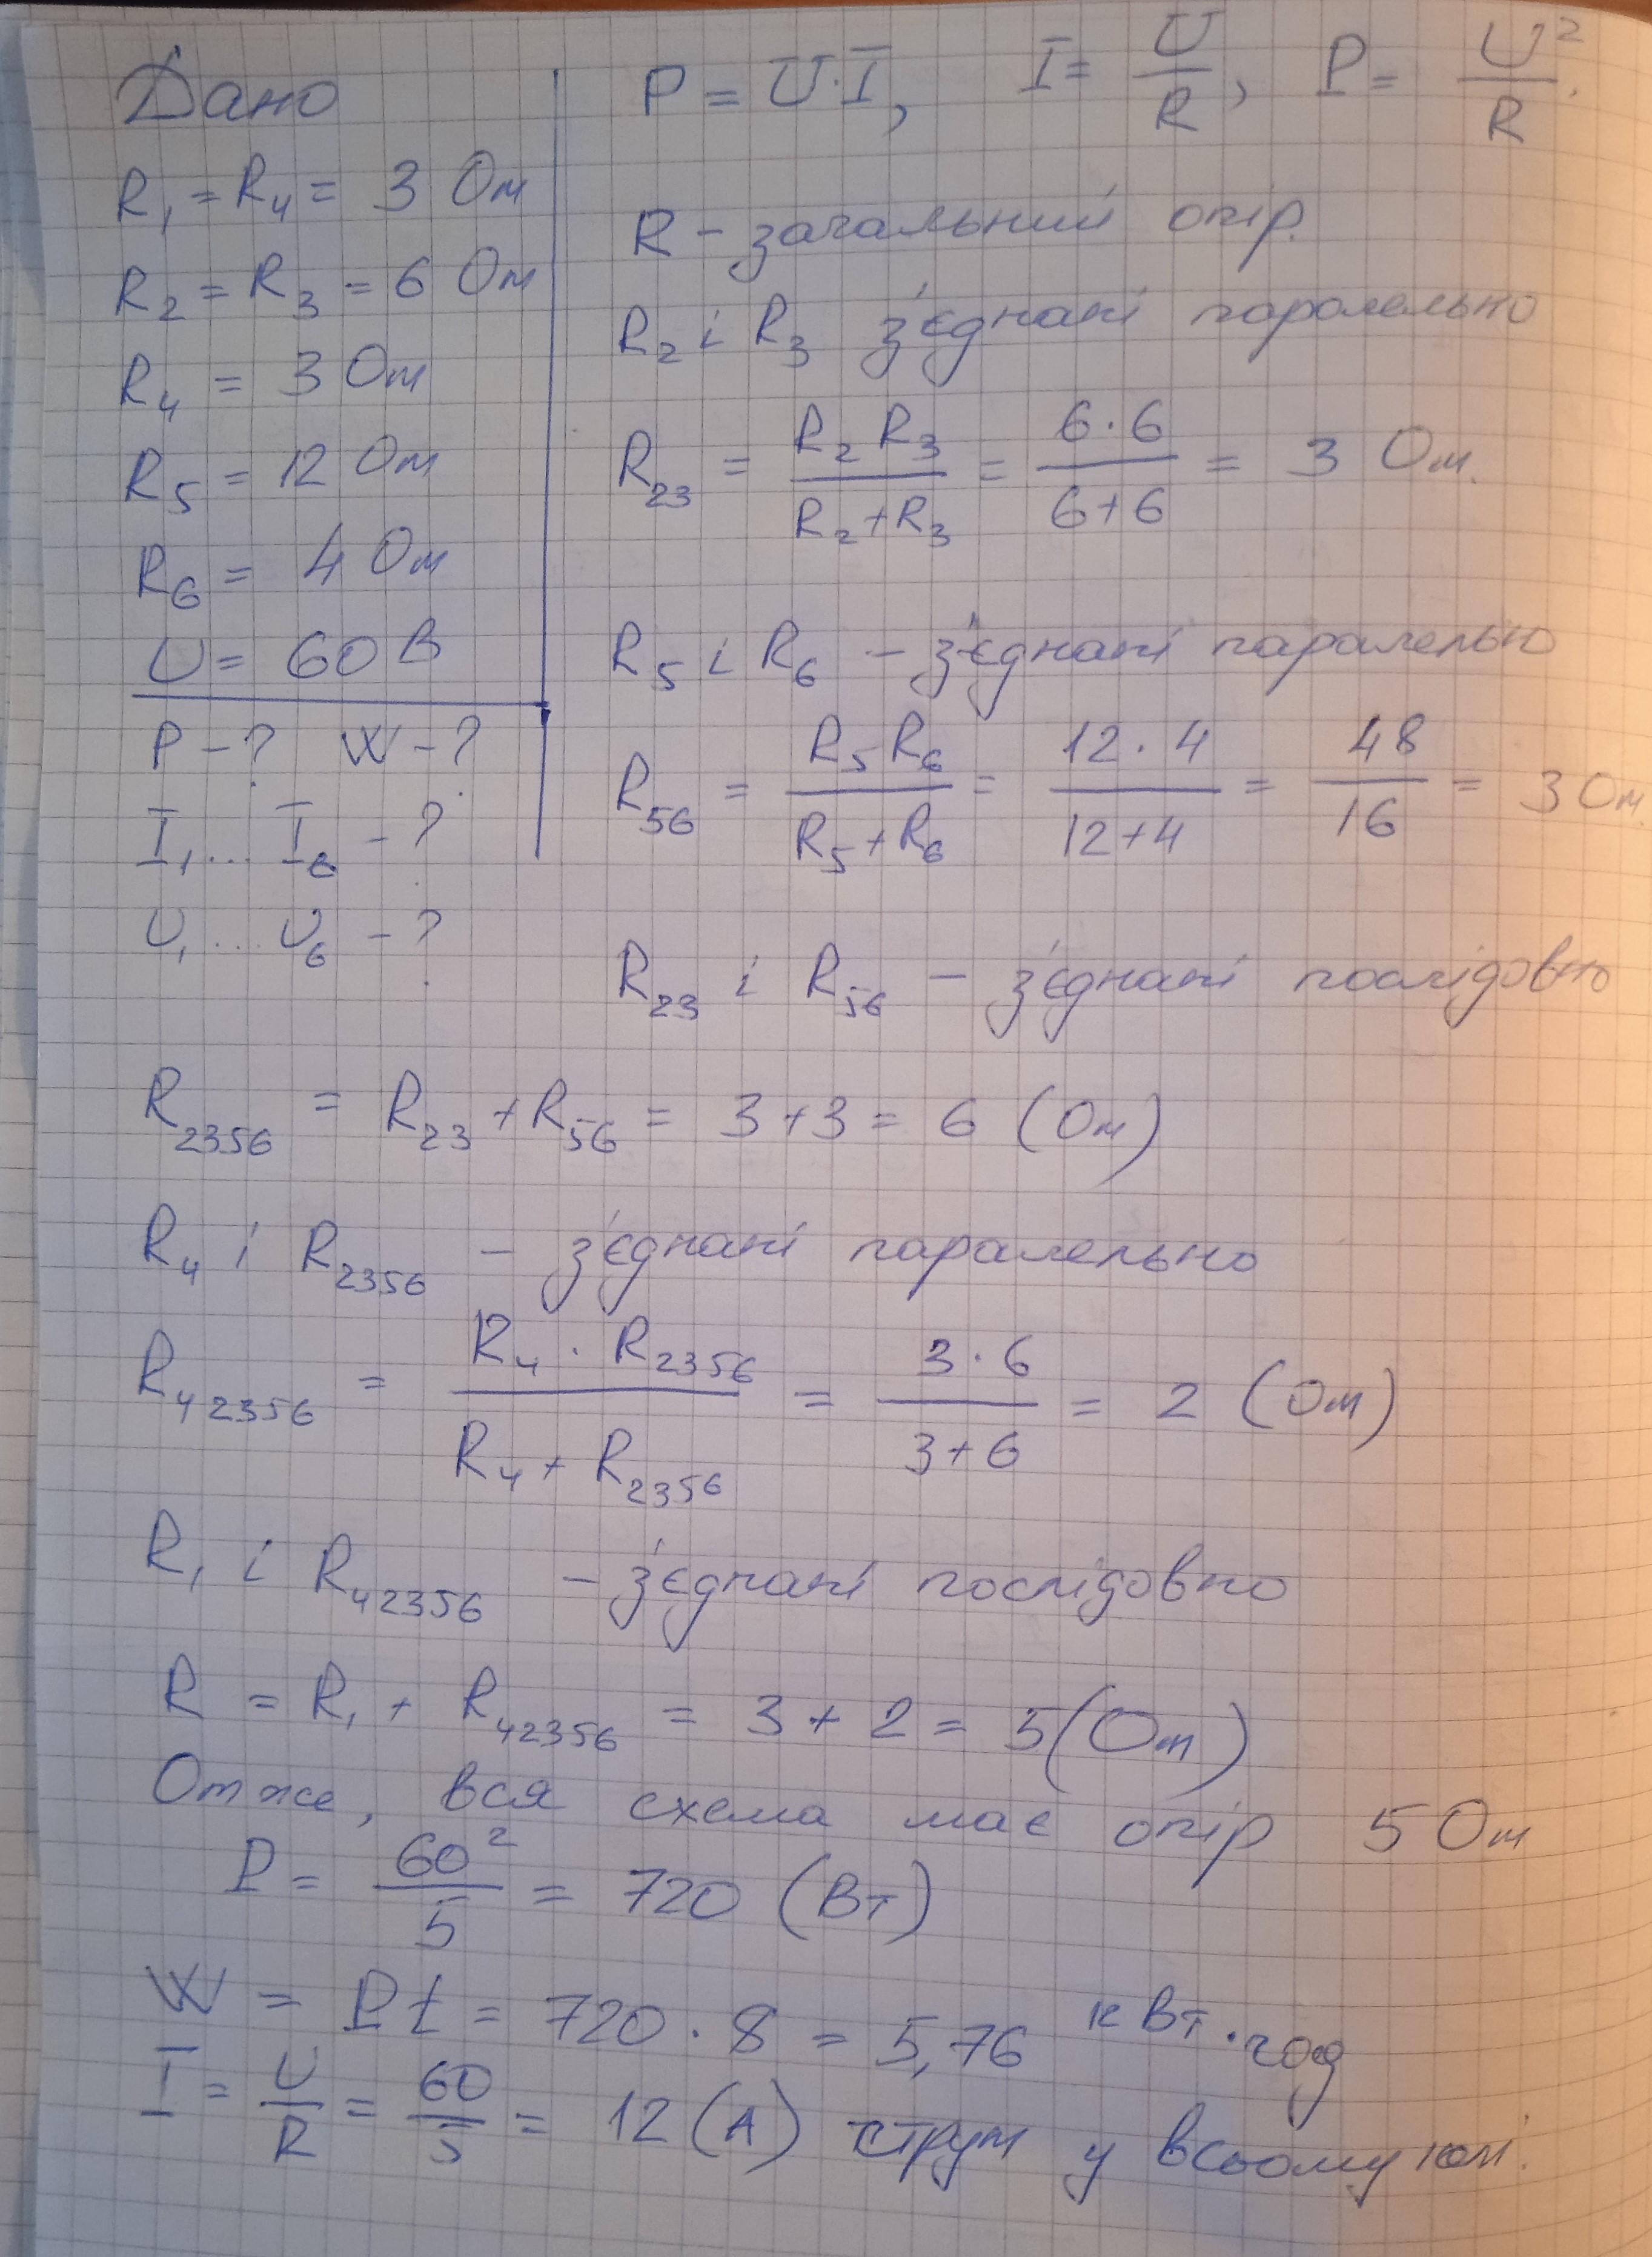 Дано
R₁ = R₄ = 3 Ом
R₂ = R₃ = 6 Ом
R₄ = 3 Ом
R₅ = 12 Ом
R₆ = 4 Ом
U = 60 В
P - ? W - ?
I₁ ... I₆ - ?
U₁ ... U₆ - ?
P = U·I, I = U/R, P = U²/R.
R - загальний опір.
R₂ і R₃ з'єднані паралельно
R₂₃ = R₂ R₃ / R₂+R₃ = 6·6 / 6+6 = 3 Ом.
R₅ і R₆ - з'єднані паралельно
R₅₆ = R₅ R₆ / R₅+R₆ = 12·4 / 12+4 = 48/16 = 3 Ом.
R₂₃ і R₅₆ - з'єднані послідовно
R₂₃₅₆ = R₂₃ + R₅₆ = 3+3 = 6 (Ом)
R₄ і R₂₃₅₆ - з'єднані паралельно
R₄₂₃₅₆ = R₄ · R₂₃₅₆ / R₄ + R₂₃₅₆ = 3·6 / 3+6 = 2 (Ом)
R₁ і R₄₂₃₅₆ - з'єднані послідовно
R = R₁ + R₄₂₃₅₆ = 3 + 2 = 5 (Ом)
Отже, вся схема має опір 5 Ом
P = 60²/5 = 720 (Вт)
W = Pt = 720 · 8 = 5,76 кВт·год
I = U/R = 60/5 = 12 (А) струм у всьому колі.